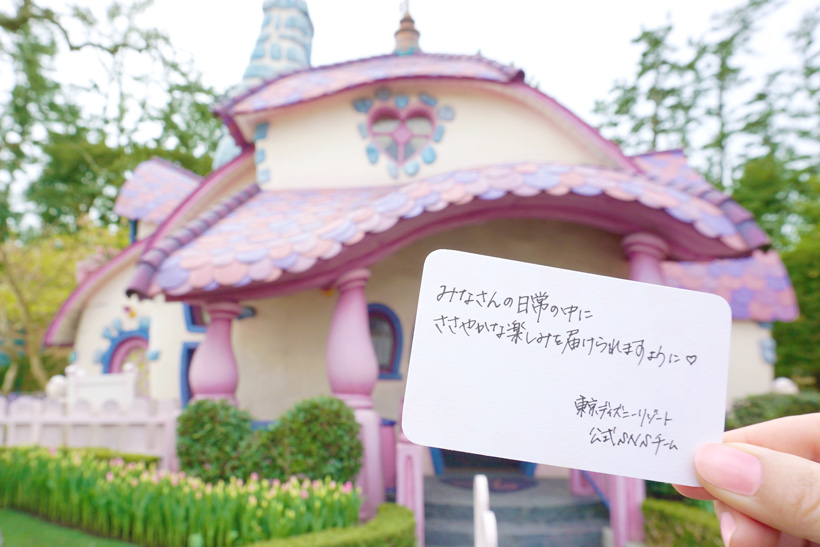 みなさんの日常の中に
ささやかな楽しみを届けられますように♡
東京ディズニーリゾート
公式SNSチーム